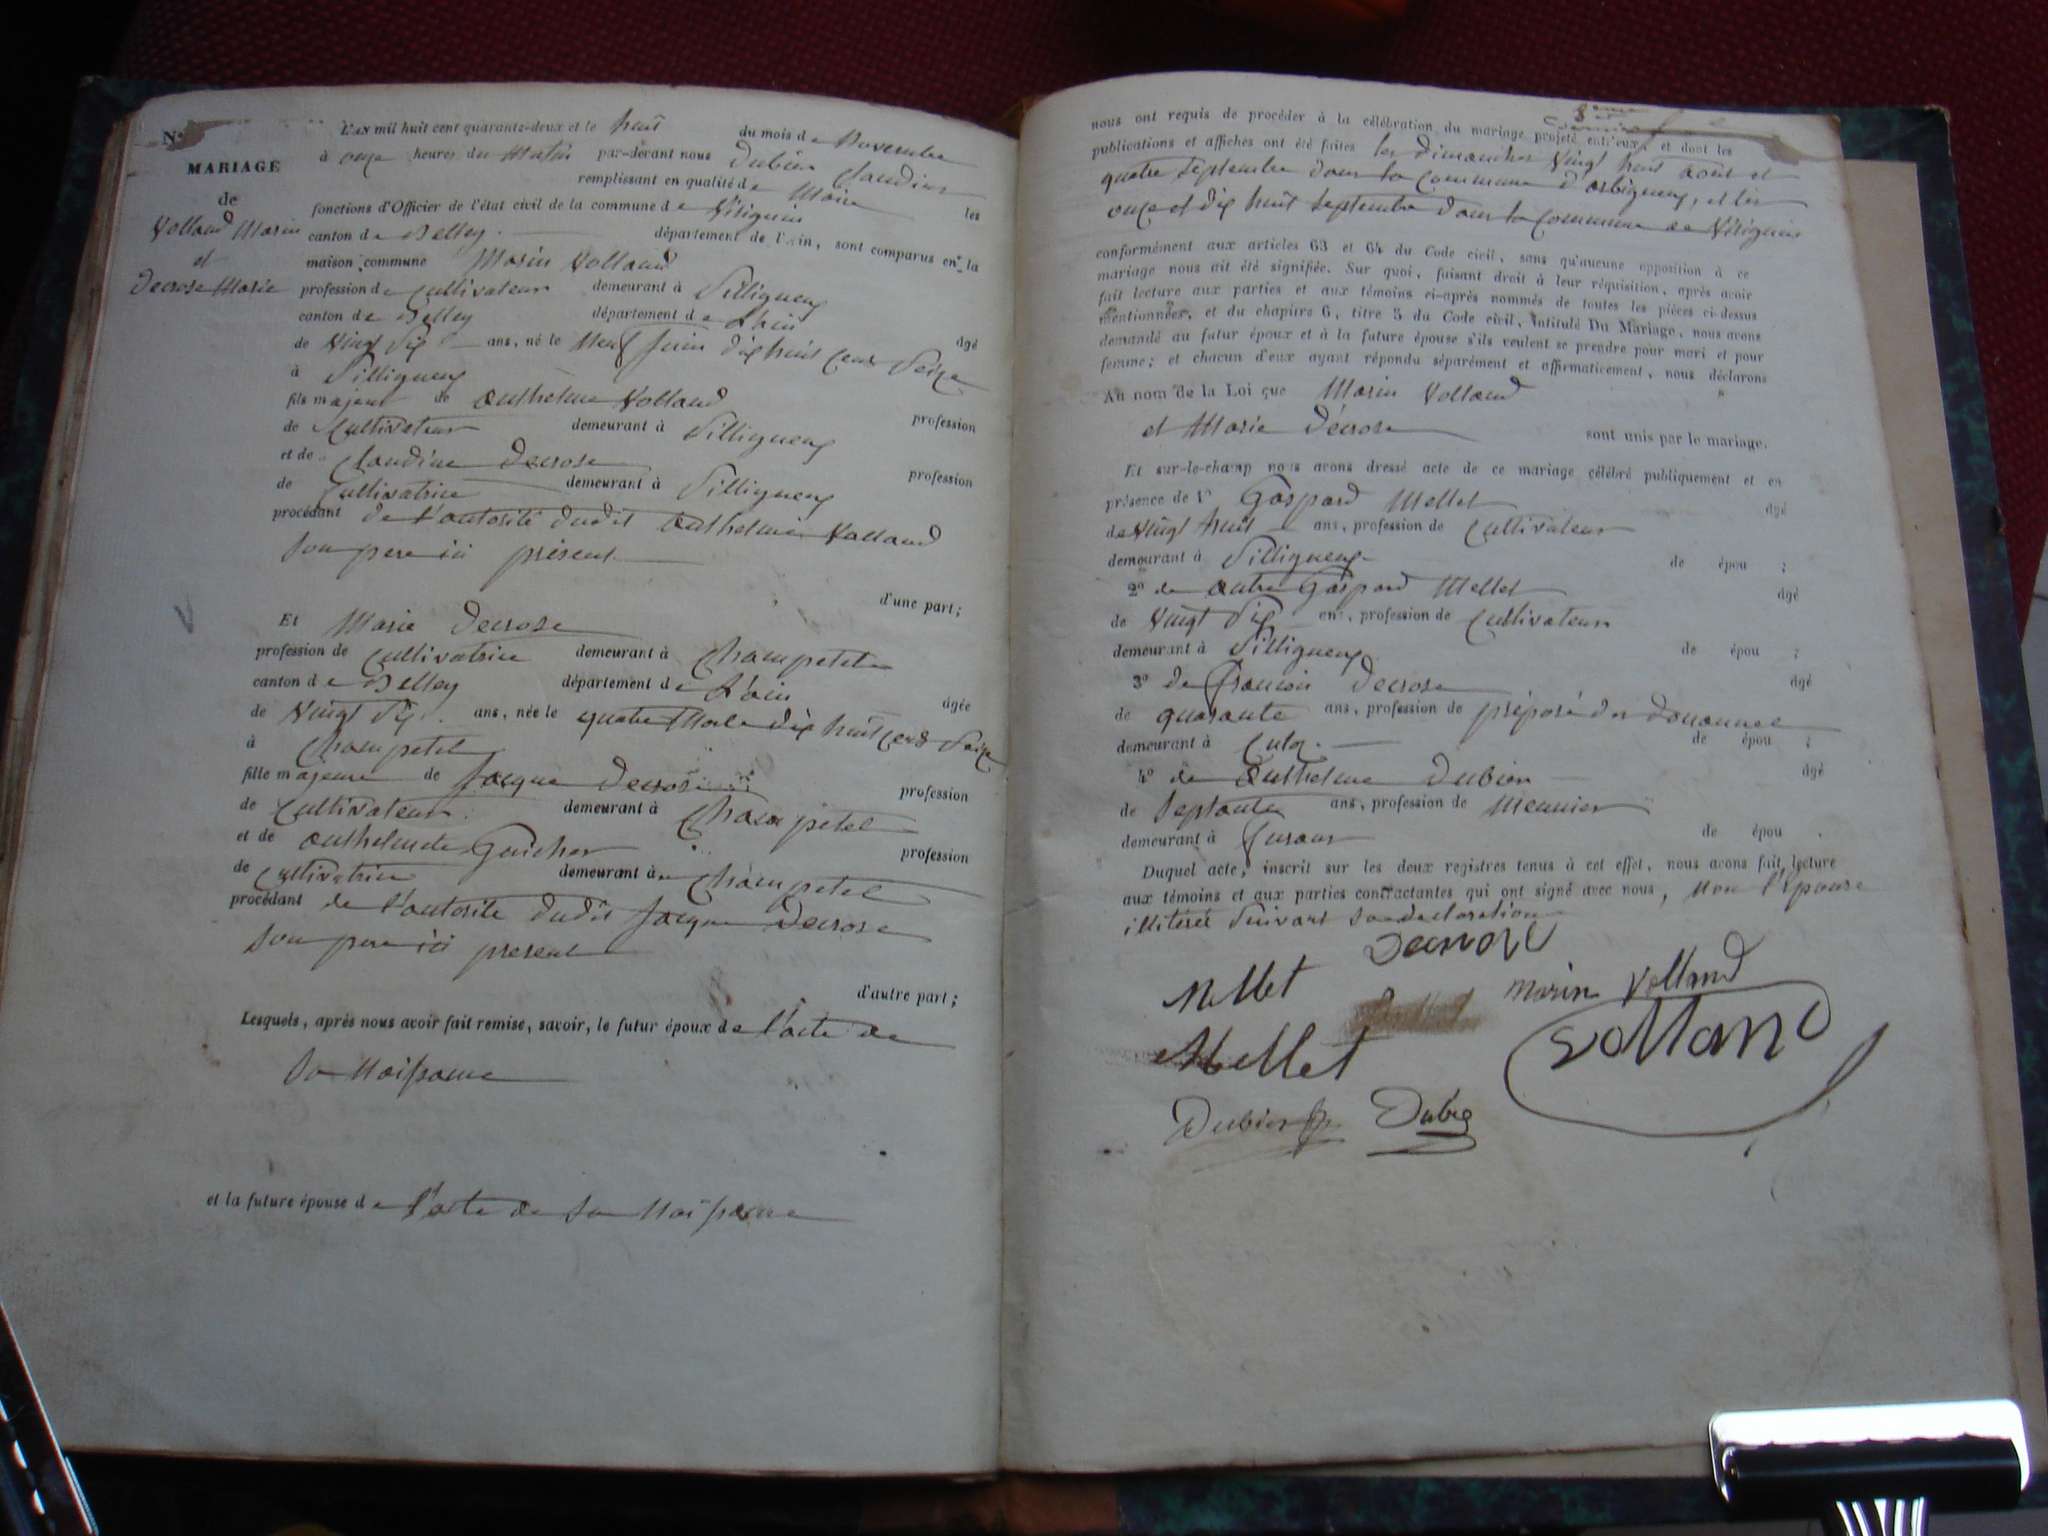 N°
MARIAGE
de
Volland Marin
et
Decrose Marie
L'AN mil huit cent quarante-deux et le huit du mois de Novembre
à onze heures du Matin par-devant nous Dubien Claudius
remplissant en qualité de Maire les
fonctions d'Officier de l'état civil de la commune de Virignin
canton de Belley. département de l'Ain, sont comparus en la
maison commune Marin Volland
profession de Cultivateur demeurant à Pilligneux
canton de Belley département de L'ain âgé
de Vingt Six ans, né le Neuf Juin dix huit cent Seize
à Pilligneux
fils majeur de Anthelme Volland profession
de Cultivateur demeurant à Pilligneux
et de Claudine Decrose profession
de Cultivatrice demeurant à Pilligneux
procédant de l'autorité dudit Anthelme Volland
son pere ici présent
d'une part;
Et Marie Decrose
profession de Cultivatrice demeurant à Champetel
canton de Belley département de L'ain âgée
de Vingt Six. ans, née le quatre dix huit cent Seize
à Champetel
fille majeure de Jacque Decrose profession
de Cultivateur. demeurant à Champetel
et de Anthelmette Guicher profession
de Cultivatrice demeurant à Champetel
procédant de l'autorité dudit Jacque Decrose
son pere ici present
d'autre part;
Lesquels, après nous avoir fait remise, savoir, le futur époux de l'acte de
sa Naissance
et la future épouse de l'acte de sa Naissance
nous ont requis de procéder à la célébration du mariage projeté entr'eux, et dont les
publications et affiches ont été faites les dimanches Vingt huit Août et
quatre Septembre dans la commune d'arbigneux, et les
onze et dix huit Septembre dans la commune de Virignin
conformément aux articles 63 et 64 du Code civil, sans qu'aucune opposition à ce
mariage nous ait été signifiée. Sur quoi, faisant droit à leur réquisition, après avoir
fait lecture aux parties et aux témoins ci-après nommés de toutes les pièces ci-dessus
mentionnées, et du chapitre 6, titre 5 du Code civil, intitulé Du Mariage, nous avons
demandé au futur époux et à la future épouse s'ils veulent se prendre pour mari et pour
femme; et chacun d'eux ayant répondu séparément et affirmativement, nous déclarons
Au nom de la Loi que Marin Volland
et Marie Décrose sont unis par le mariage.
Et sur-le-champ nous avons dressé acte de ce mariage célébré publiquement et en
présence de 1° Gaspard Mellet âgé
de Vingt huit ans, profession de Cultivateur
demeurant à Pilligneux de épou ;
2° de autre Gaspard Mellet âgé
de Vingt Six ans, profession de Cultivateur
demeurant à Pilligneux de épou ;
3° de François Decrose âgé
de quarante ans, profession de préposé des douannes
demeurant à Culoz. de épou ;
4° de Anthelme Dubien âgé
de Septante ans, profession de Meunier
demeurant à de épou .
Duquel acte, inscrit sur les deux registres tenus à cet effet, nous avons fait lecture
aux témoins et aux parties contractantes qui ont signé avec nous, Non l'Epouse
illitérée Suivant sa declaration
Decrose
Mellet
Marin Volland
Mellet
Volland
Dubien